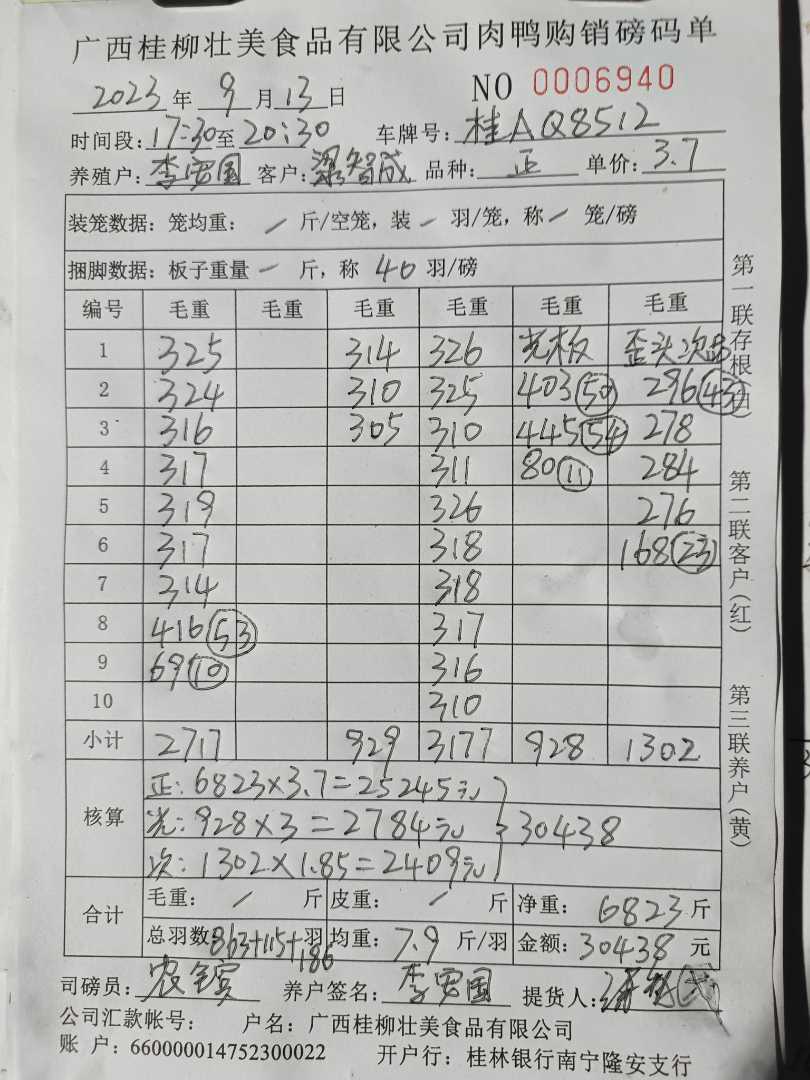 广西桂柳壮美食品有限公司肉鸭购销磅码单
2023年 9月13日 NO 0006940
时间段:17:30至20:30 车牌号:桂AQ8512
养殖户:李宏国 客户:梁智成 品种:正 单价:3.7
装笼数据:笼均重: / 斤/空笼,装 - 羽/笼,称 / 笼/磅
捆脚数据:板子重量 - 斤,称 40 羽/磅
编号 毛重 毛重 毛重 毛重 毛重 毛重
1 325 314 326 光板 歪头次品
2 324 310 325 403(50) 296(43)
3 316 305 310 445(54) 278
4 317 311 80(11) 284
5 319 326 276
6 317 318 168(23)
7 314 318
8 416(53) 317
9 69(10) 316
10 310
小计 2717 929 3177 928 1302
核算 正:6823×3.7=25245元
光:928×3=2784元 30438
次:1302×1.85=2409元
合计 毛重: / 斤 皮重: / 斤 净重: 6823斤
总羽数:863+115+186羽 均重:7.9斤/羽 金额:30438元
司磅员: 养户签名:李宏国 提货人:
公司汇款帐号: 户名:广西桂柳壮美食品有限公司
账 户:660000014752300022 开户行:桂林银行南宁隆安支行
第一联存根(白)
第二联客户(红)
第三联养户(黄)